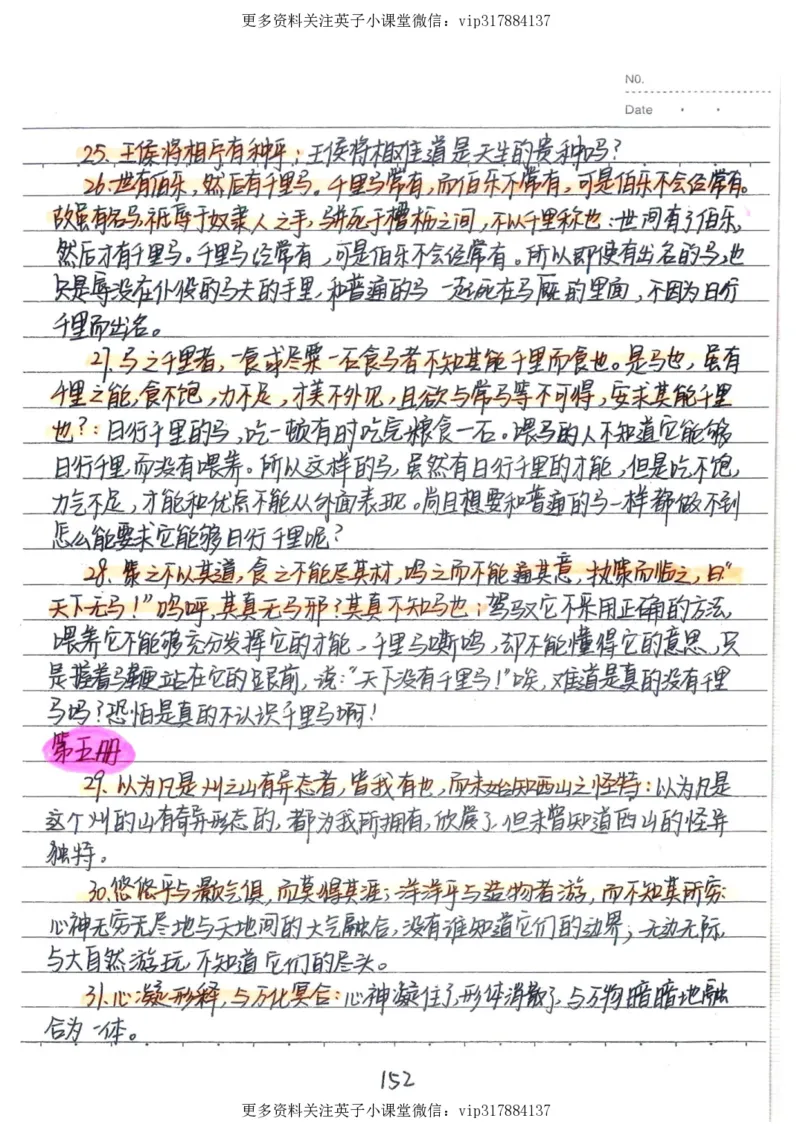 更多资料关注英子小课堂微信：vip317884137
NO.
Date
25. 王侯将相宁有种乎：王侯将相难道是天生的贵种吗？
26. 世有伯乐，然后有千里马。千里马常有，而伯乐不常有，可是伯乐不会经常有。
故虽有名马，祗辱于奴隶人之手，骈死于槽枥之间，不以千里称也：世间有了伯乐，
然后才有千里马。千里马经常有，可是伯乐不会经常有。所以即使有出名的马，也
只是辱没在仆役的马夫的手里，和普通的马一起死在马厩的里面，不因为日行
千里而出名。
27. 马之千里者，一食或尽粟一石食马者不知其能千里而食也。是马也，虽有
千里之能，食不饱，力不足，才美不外见，且欲与常马等不可得，安求其能千里
也？：日行千里的马，吃一顿有时吃完粮食一石。喂马的人不知道它能够
日行千里而没有喂养。所以这样的马，虽然有日行千里的才能，但是吃不饱，
力气不足，才能和优点不能从外面表现。尚且想要和普通的马一样都做不到
怎么能要求它能够日行千里呢？
28. 策之不以其道，食之不能尽其材，鸣之而不能通其意，执策而临之，曰：“
天下无马！”呜呼，其真无马邪？其真不知马也：驾驭它不采用正确的方法，
喂养它不能够充分发挥它的才能，千里马嘶鸣，却不能懂得它的意思，只
是握着马鞭站在它的跟前，说：“天下没有千里马！”唉，难道是真的没有千里
马吗？恐怕是真的不认识千里马啊！
第五册
29. 以为凡是州之山有异态者，皆我有也，而未始知西山之怪特：以为凡是
这个州的山有奇异形态的，都为我所拥有，欣赏了，但未曾知道西山的怪异
独特。
30. 悠悠乎与颢气俱，而莫得其涯；洋洋乎与造物者游，而不知其所穷：
心神无穷无尽地与天地间的大气融合，没有谁知道它们的边界；无边无际，
与大自然游玩，不知道它们的尽头。
31. 心凝形释，与万化冥合：心神凝住了，形体消散了，与万物暗暗地融
合为一体。
152
更多资料关注英子小课堂微信：vip317884137